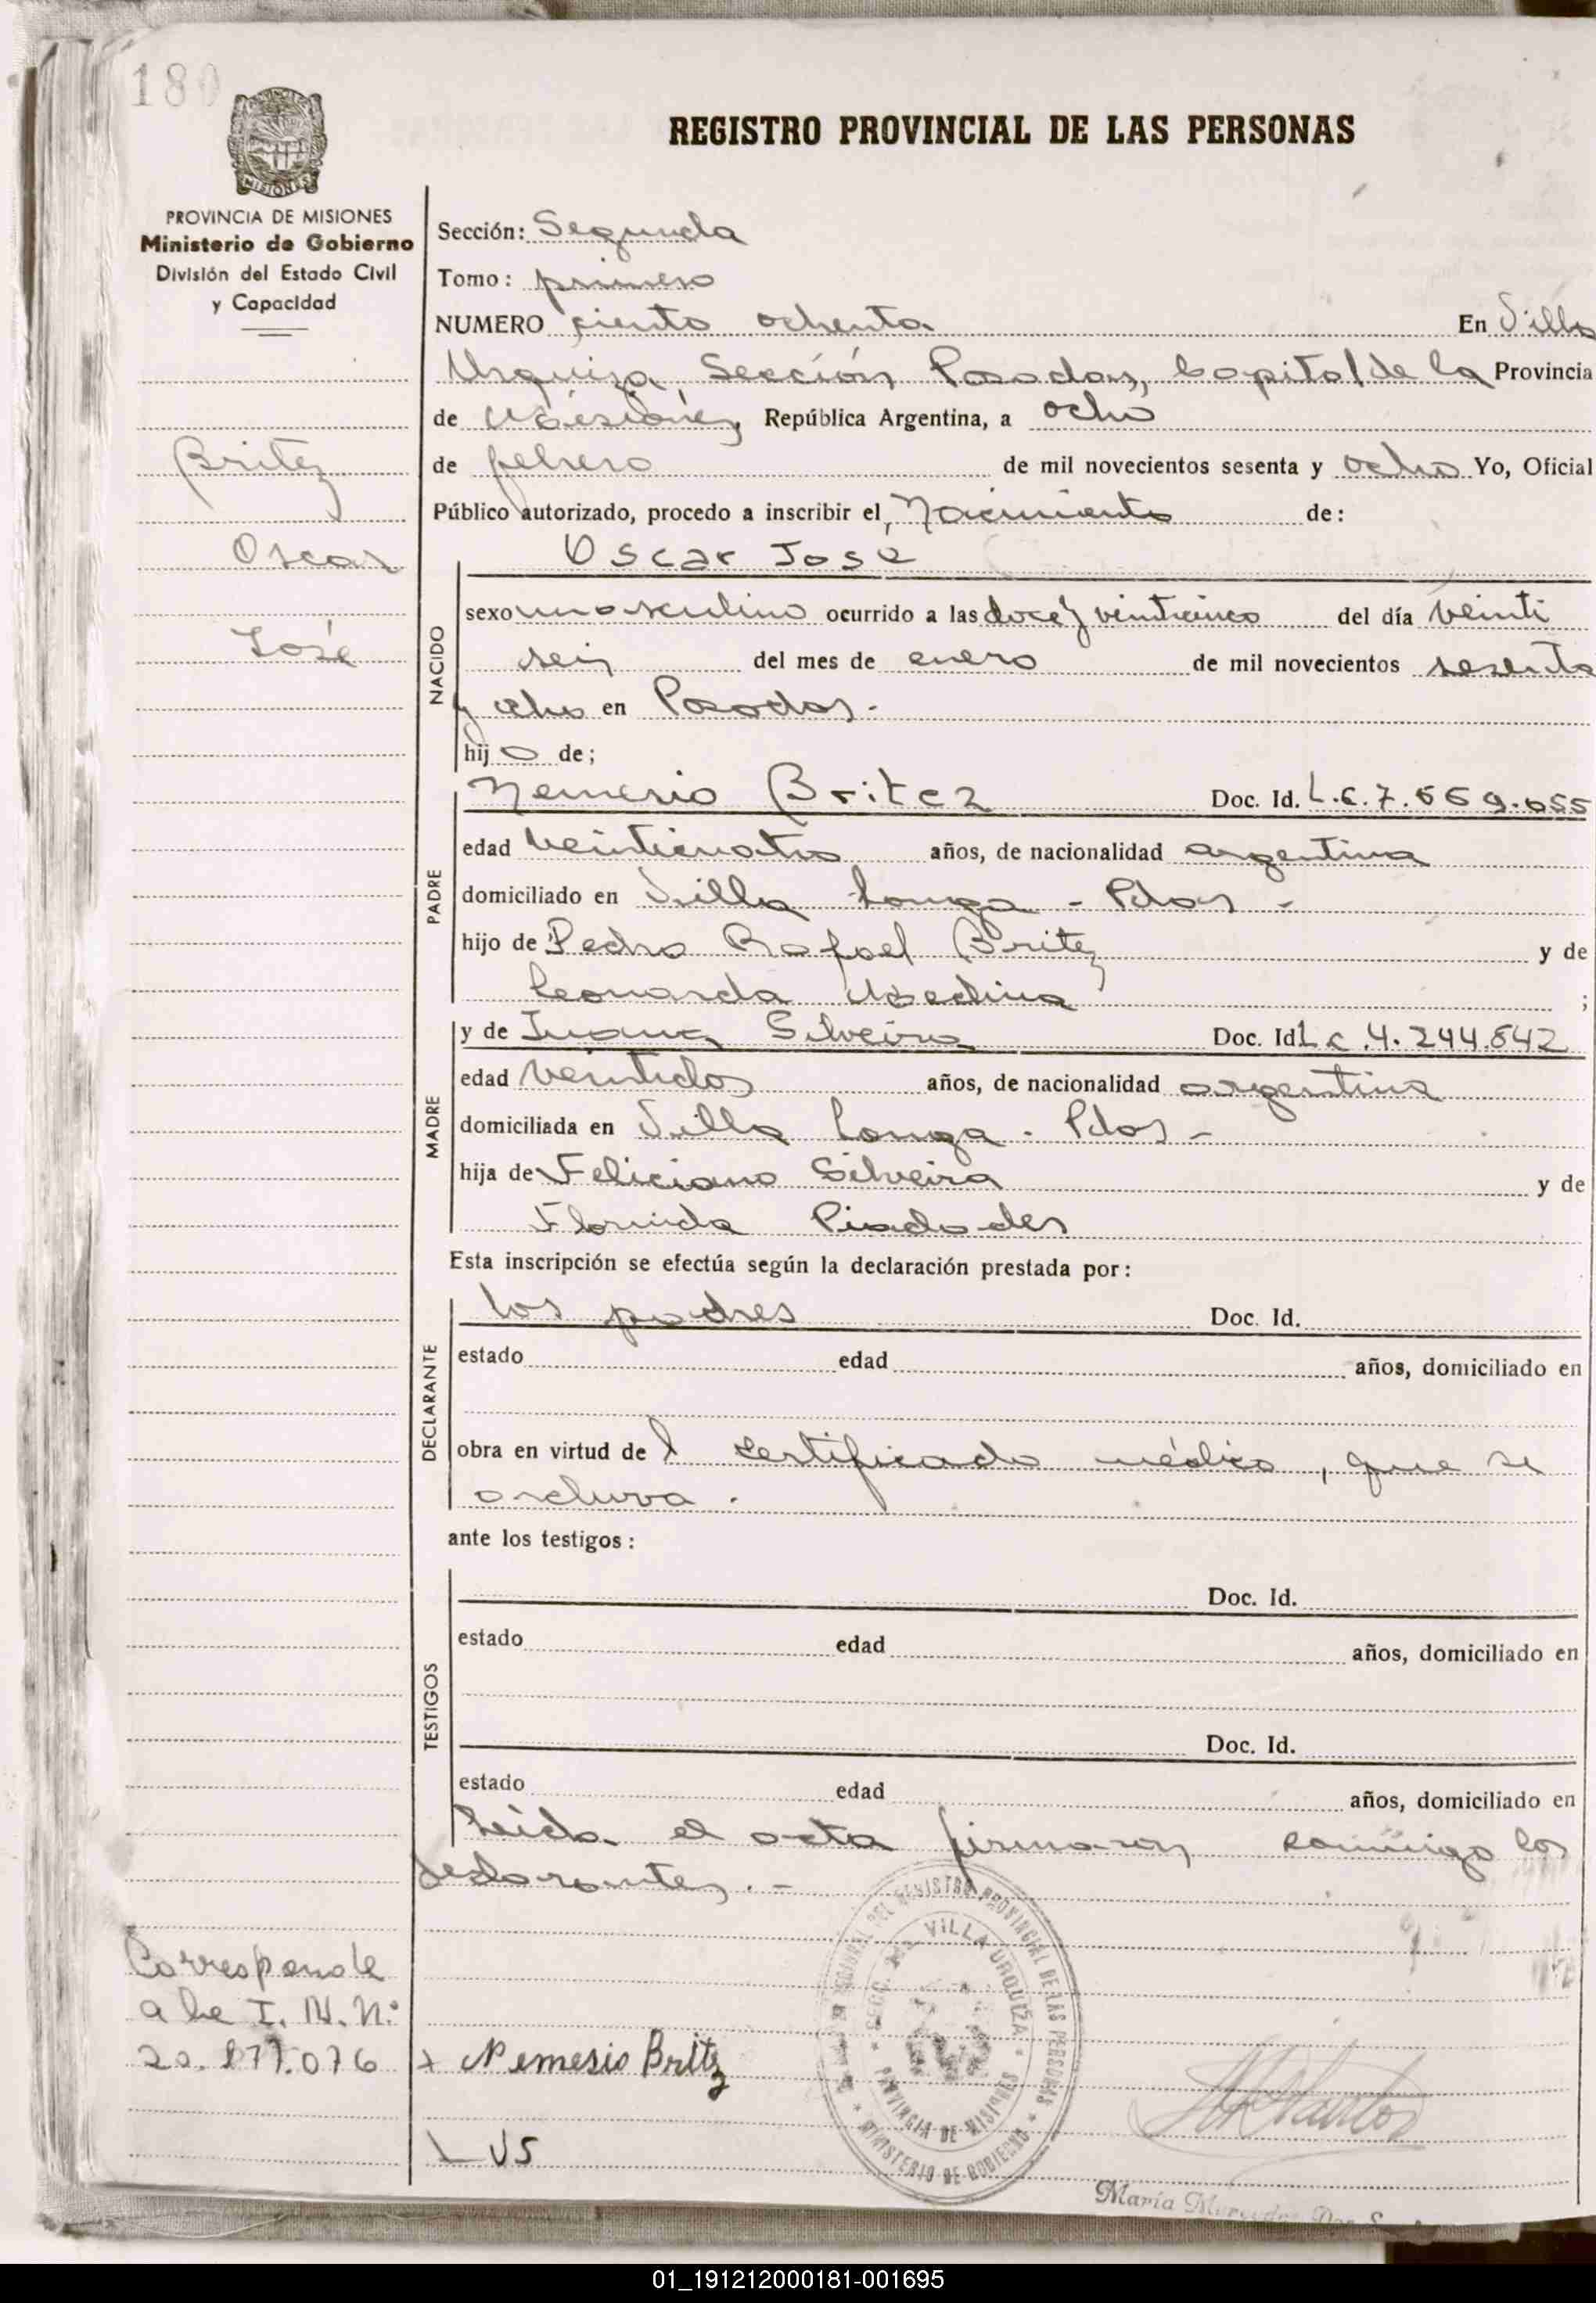 180
REGISTRO PROVINCIAL DE LAS PERSONAS
MISIONES
PROVINCIA DE MISIONES
Ministerio de Gobierno
División del Estado Civil
y Capacidad
Britez
Oscar
José
Sección: Segunda
Tomo: primero
NUMERO ciento ochenta En Villa
Urquiza, Sección Posadas, Capital de la Provincia
de Misiones, República Argentina, a ocho
de febrero de mil novecientos sesenta y ocho Yo, Oficial
Público autorizado, procedo a inscribir el Nacimiento de:
Oscar José
NACIDO
sexo masculino ocurrido a las doce y veinticinco del día veinti
seis del mes de enero de mil novecientos sesenta
y ocho en Posadas.-
hijo de;
PADRE
Nemesio Britez Doc. Id. L.E.7.669.055
edad veinticuatro años, de nacionalidad argentina
domiciliado en Villa Longa - Pdas -
hijo de Pedro Rafael Britez y de
Leonarda Medina ;
MADRE
y de Juana Silveira Doc. Id L.C.4.244.842
edad veintidos años, de nacionalidad argentina
domiciliada en Villa Longa - Pdas -
hija de Feliciano Silveira y de
Florinda Piedades
Esta inscripción se efectúa según la declaración prestada por:
DECLARANTE
los padres Doc. Id.
estado edad años, domiciliado en
obra en virtud de l certificado médico, que se
archiva.
ante los testigos:
TESTIGOS
Doc. Id.
estado edad años, domiciliado en
Doc. Id.
estado edad años, domiciliado en
Leida el acta firman conmigo los
declarantes.-
Corresponde
a la I. N. N°
20.877.076
x Nemesio Britz
SECC. 2da. VILLA URQUIZA
PROVINCIA DE MISIONES
REGISTRO PROVINCIAL DE LAS PERSONAS
MINISTERIO DE GOBIERNO
María Mercedes Dos
01_191212000181-001695